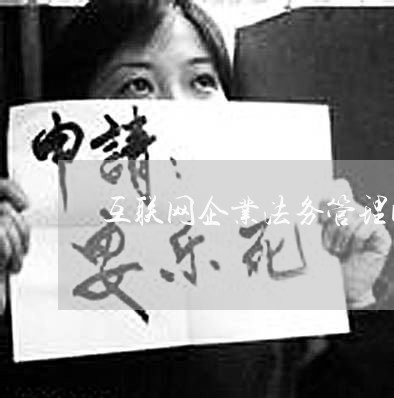 申請：
互联网企業法务管理
安乐死